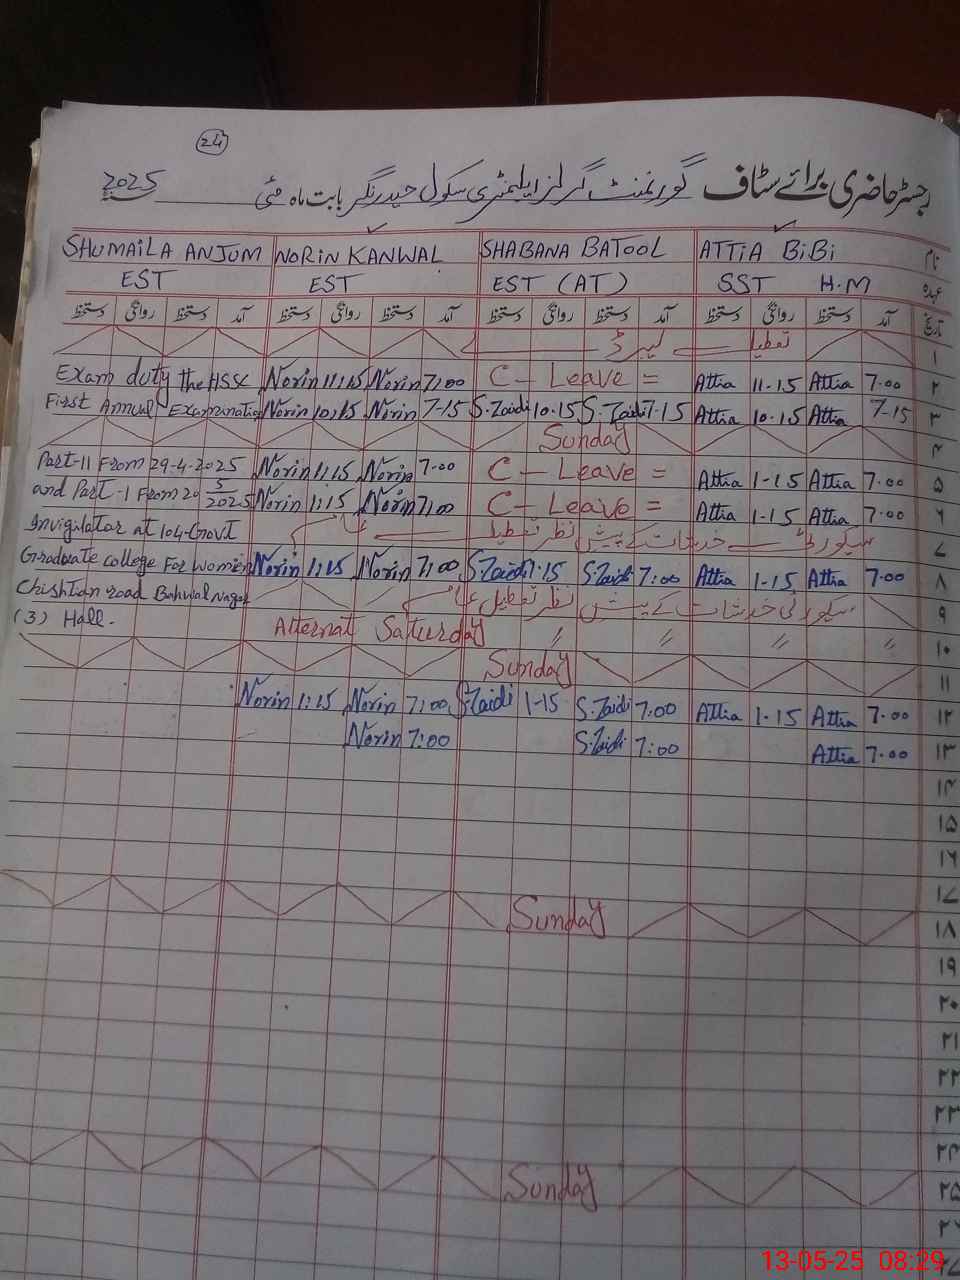 24
رجسٹر حاضری برائے سٹاف گورنمنٹ گرلز ایلیمنٹری سکول حیدر نگر بابت ماہ مئی 2025
SHUMAILA ANJUM NORIN KANWAL SHABANA BATOOL ATTIA BiBi نام
EST EST EST (AT) SST H.M عہدہ
دستخط روانگی دستخط آمد دستخط روانگی دستخط آمد دستخط روانگی دستخط آمد دستخط روانگی دستخط آمد تاریخ
تعطیل ۱
Exam duty the HSSC Norin 11:15 Norin 7:00 C - Leave = Attia 11-15 Attia 7.00 ۲
First Annual Examination Norin 10:15 Norin 7-15 S.Zaidi 10-15 S.Zaidi 7-15 Attia 10.15 Attia 7-15 ۳
Sunday ۴
Part-II From 29-4-2025 Norin 1:15 Norin 7-00 C - Leave = Attia 1-15 Attia 7.00 ۵
and Part-I From 20 5/2025 Norin 1:15 Norin 7:00 C - Leave = Attia 1-15 Attia 7.00 ۶
Invigilator at 104-Govt خدشات کے پیش نظر تعطیل ۷
Graduate college For women Norin 1:15 Norin 7:00 S.Zaidi 1:15 S.Zaidi 7:00 Attia 1-15 Attia 7.00 ۸
Chishtian road Bahwalnagar سیکورٹی خدشات کے پیش نظر تعطیل ۹
(3) Hall. Alternat Saturday " " " " ۱۰
Sunday ۱۱
Norin 1:15 Norin 7:00 S.Zaidi 1-15 S.Zaidi 7:00 Attia 1-15 Attia 7.00 ۱۲
Norin 7:00 S.Zaidi 7:00 Attia 7.00 ۱۳
۱۴
۱۵
۱۶
۱۷
Sunday ۱۸
۱۹
۲۰
۲۱
۲۲
۲۳
۲۴
Sunday ۲۵
۲۶
۲۷
13-05-25 08:29